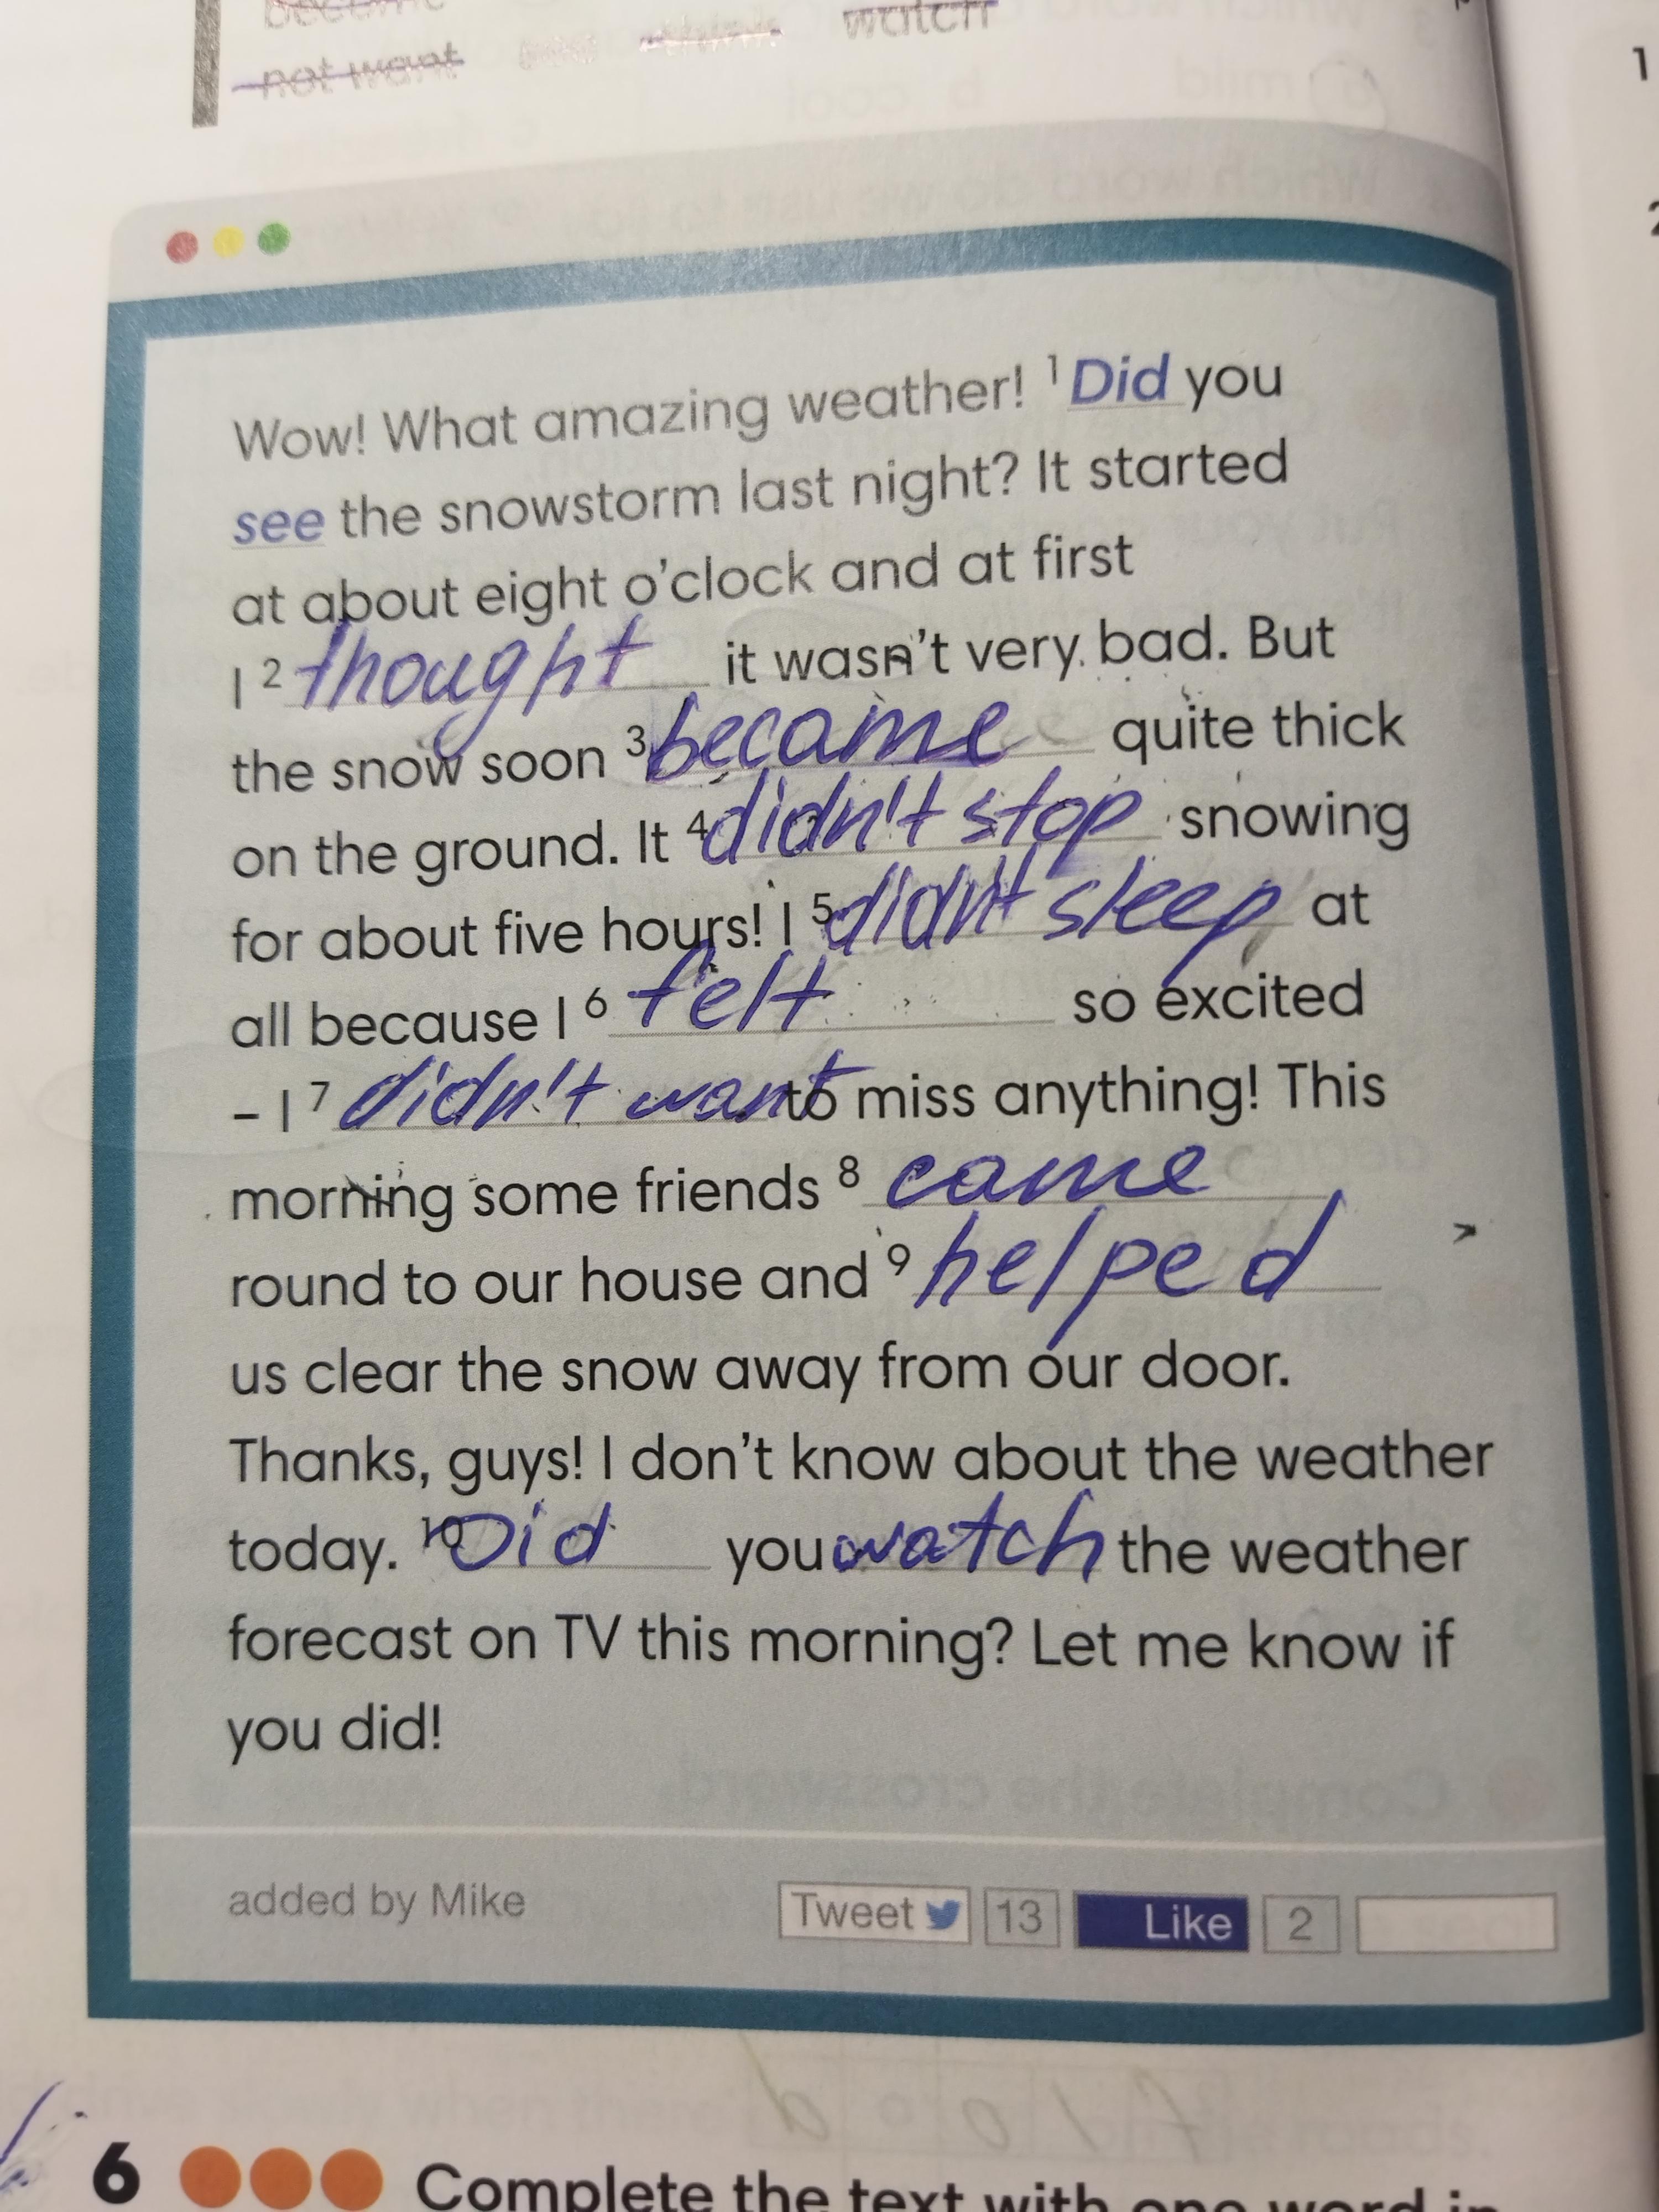 become
not want see think watch
1
2
Wow! What amazing weather! 1 Did you
see the snowstorm last night? It started
at about eight o'clock and at first
I 2 thought it wasn't very bad. But
the snow soon 3 became quite thick
on the ground. It 4 didn't stop snowing
for about five hours! I 5 didn't sleep at
all because I 6 felt so excited
– I 7 didn't want to miss anything! This
morning some friends 8 came
round to our house and 9 helped
us clear the snow away from our door.
Thanks, guys! I don't know about the weather
today. 10 Did you watch the weather
forecast on TV this morning? Let me know if
you did!
added by Mike Tweet 13 Like 2
6 Complete the text with one word in